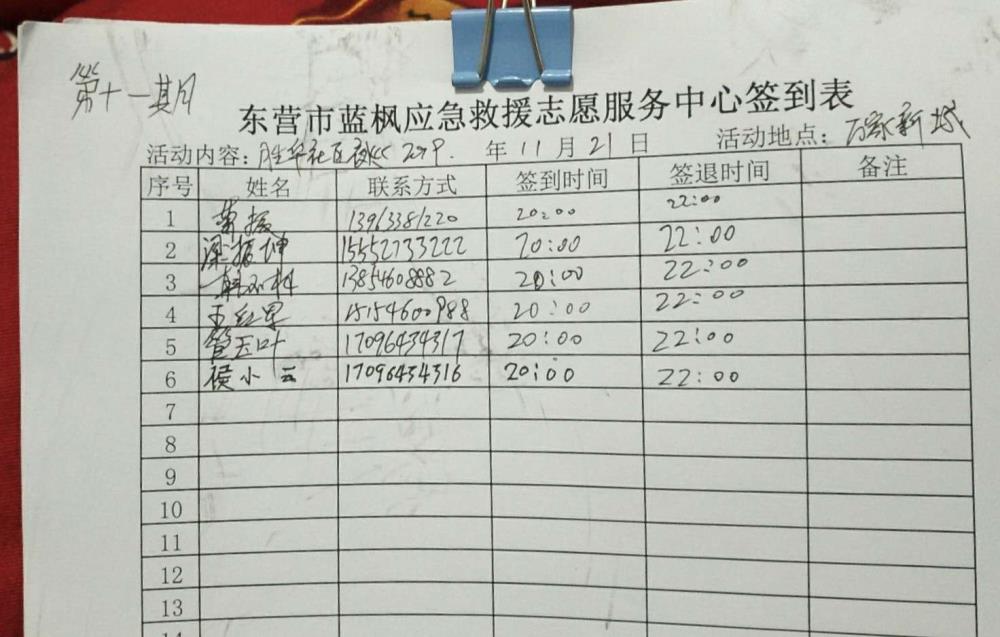 第十一期
东营市蓝枫应急救援志愿服务中心签到表
活动内容：胜华社区 2019. 年 11 月 21 日 活动地点：万家新城
序号 姓名 联系方式 签到时间 签退时间 备注
1 20:00 22:00
2 梁振坤 15552733222 20:00 22:00
3 13854608882 20:00 22:00
4 王红军 15154600988 20:00 22:00
5 管玉叶 17096434317 20:00 22:00
6 侯小云 17096434316 20:00 22:00
7
8
9
10
11
12
13
14